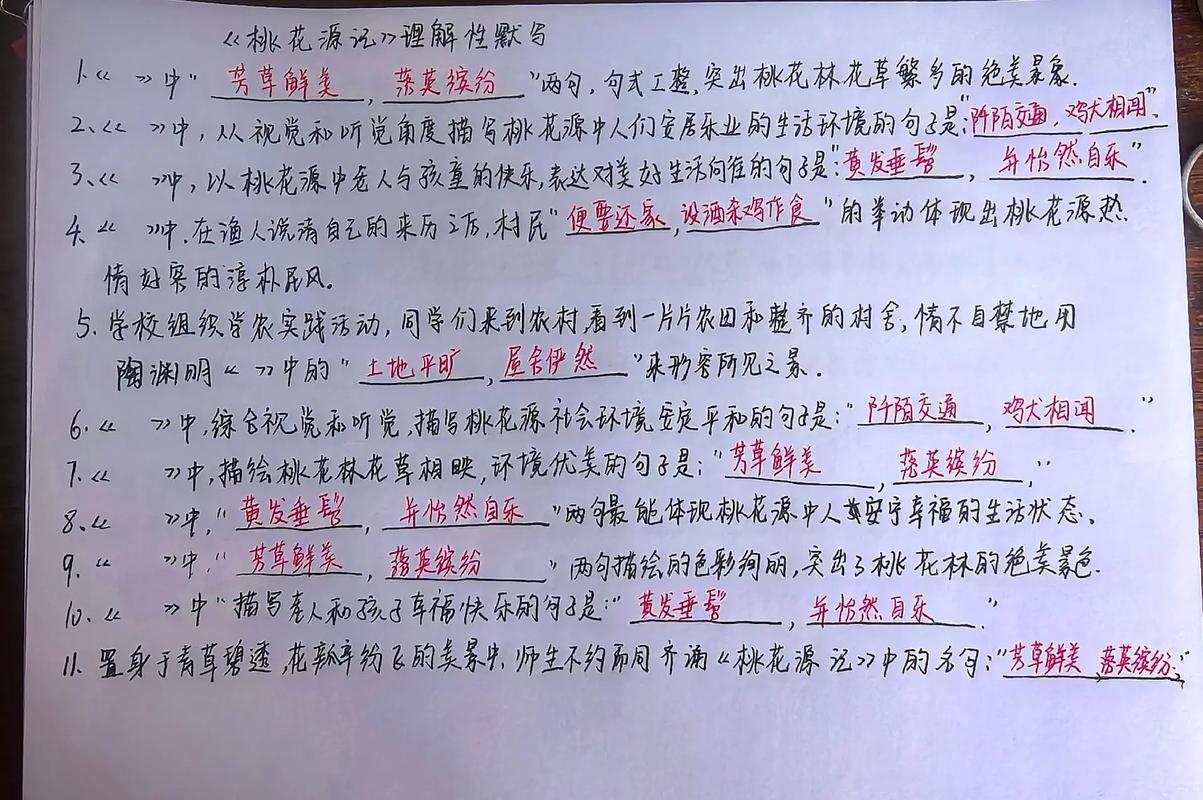 《桃花源记》理解性默写
1.《 》中"芳草鲜美,落英缤纷"两句,句式工整,突出桃花林花草繁多的绝美景象.
2、《 》中,从视觉和听觉角度描写桃花源中人们安居乐业的生活环境的句子是:"阡陌交通,鸡犬相闻".
3、《 》中,以桃花源中老人与孩童的快乐,表达对美好生活向往的句子是:"黄发垂髫,并怡然自乐".
4.《 》中,在渔人说清自己的来历之后,村民"便要还家,设酒杀鸡作食"的举动体现出桃花源热
情好客的淳朴民风。
5.学校组织学农实践活动,同学们来到农村,看到一片片农田和整齐的村舍,情不自禁地用
陶渊明《 》中的"土地平旷,屋舍俨然"来形容所见之景.
6.《 》中,综合视觉和听觉,描写桃花源社会环境安定平和的句子是:"阡陌交通,鸡犬相闻".
7.《 》中,描绘桃花林花草相映,环境优美的句子是:"芳草鲜美,落英缤纷",
8.《 》中,"黄发垂髫,并怡然自乐"两句最能体现桃花源中人安宁幸福的生活状态、
9.《 》中."芳草鲜美,落英缤纷"两句描绘的色彩绚丽,突出了桃花林的绝美景色.
10.《 》中"描写老人和孩子幸福快乐的句子是:"黄发垂髫,并怡然自乐."
11.置身于青草碧透,花瓣纷飞的美景中,师生不约而同齐诵《桃花源记》中的名句:"芳草鲜美,落英缤纷."